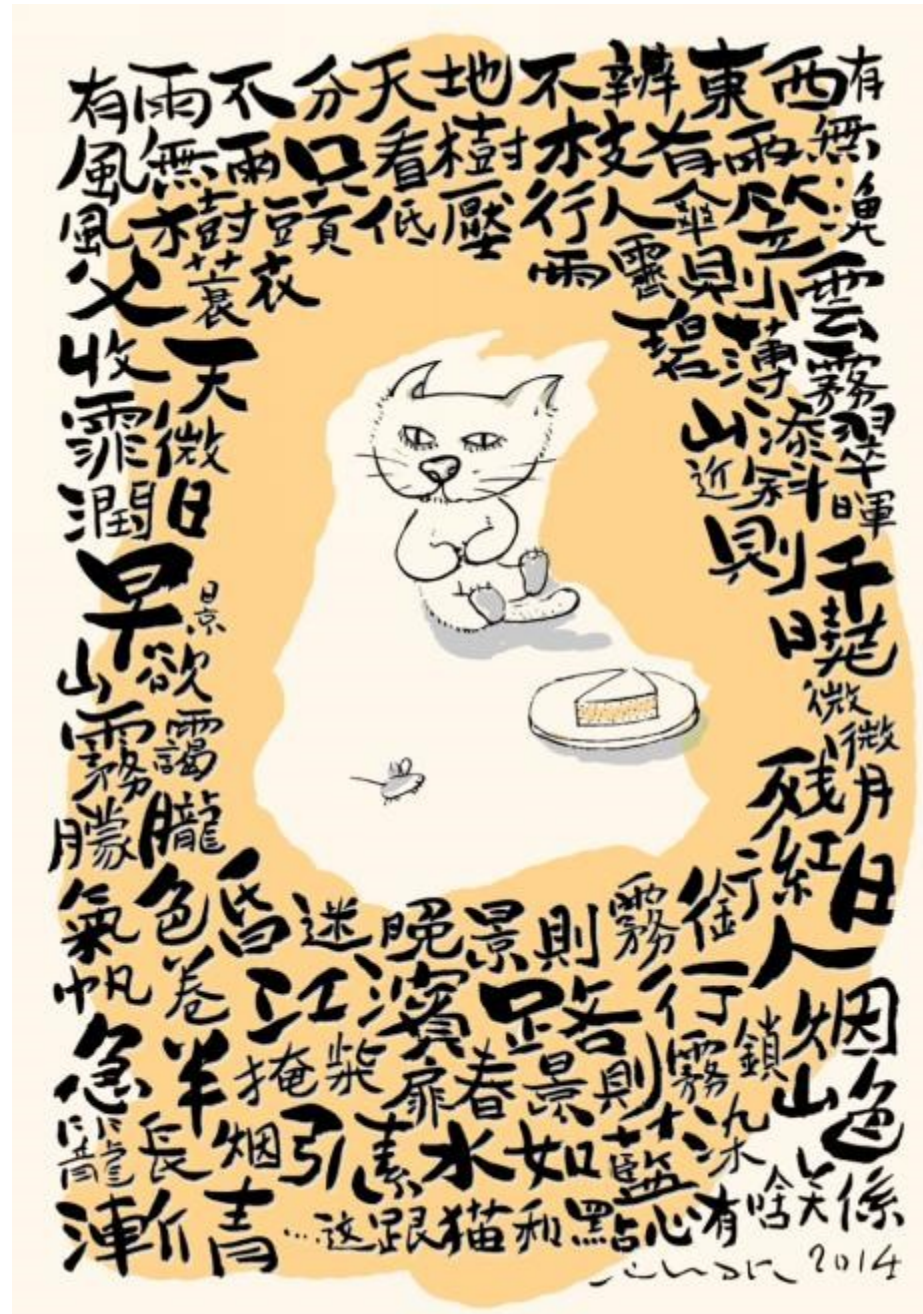 有雨不分天地不辨東西有
風無雨只看樹枝有雨無
風樹頭低壓行人傘笠漁
父蓑衣雨霽則雲
收天碧薄霧
霏微山添翠
潤日近斜暉
早景則千
山欲曉
霧靄微微
朦朧残月
氣色昏迷晚景則霧銜紅日
帆卷江濱路行人
急半掩柴扉春景則霧鎖烟
籠長烟引素水如藍染山色
漸青…这跟猫和點心有啥关係
2014